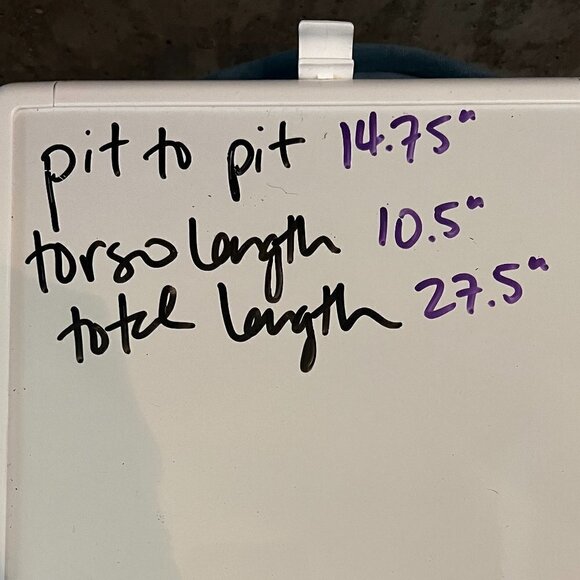 pit to pit 14.75"
torso length 10.5"
total length 27.5"